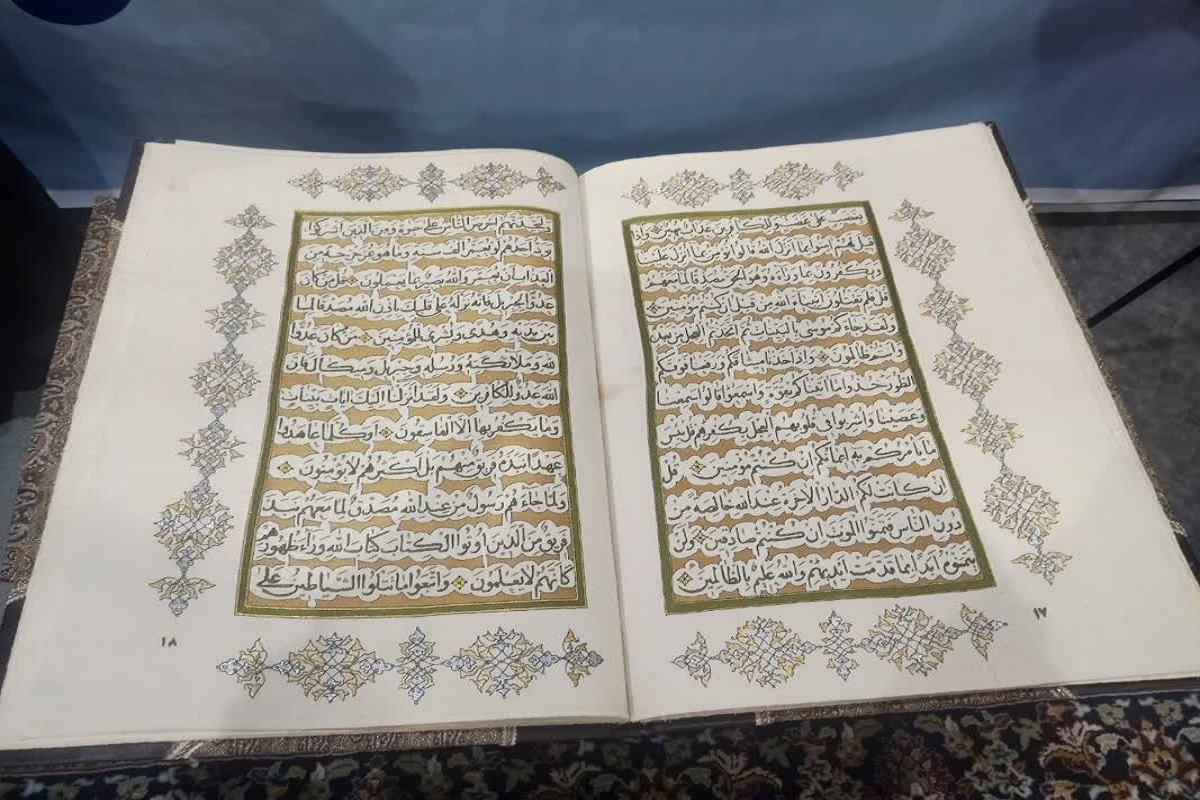 بغضب على غضب وللكافرين عذاب مهين واذا
قيل لهم امنوا بما انزل الله قالوا نؤمن بما انزل علينا
ويكفرون بما وراءه وهو الحق مصدقا لما معهم
قل فلم تقتلون انبياء الله من قبل ان كنتم مؤمنين
ولقد جاءكم موسى بالبينات ثم اتخذتم العجل من بعده
وانتم ظالمون واذ اخذنا ميثاقكم ورفعنا فوقكم
الطور خذوا ما اتيناكم بقوة واسمعوا قالوا سمعنا
وعصينا واشربوا في قلوبهم العجل بكفرهم قل بئس
ما يأمركم به ايمانكم ان كنتم مؤمنين قل
ان كانت لكم الدار الاخرة عند الله خالصة من
دون الناس فتمنوا الموت ان كنتم صادقين ولن
يتمنوه ابدا بما قدمت ايديهم والله عليم بالظالمين
١٧
ولتجدنهم احرص الناس على حيوة ومن الذين اشركوا
يود احدهم لو يعمر الف سنة وما هو بمزحزحه من
العذاب ان يعمر والله بصير بما يعملون قل من كان
عدوا لجبريل فانه نزله على قلبك باذن الله مصدقا لما
بين يديه وهدى وبشرى للمؤمنين من كان عدوا
لله وملائكته ورسله وجبريل وميكال فان
الله عدو للكافرين ولقد انزلنا اليك ايات بينات
وما يكفر بها الا الفاسقون اوكلما عاهدوا
عهدا نبذه فريق منهم بل اكثرهم لا يؤمنون
ولما جاءهم رسول من عند الله مصدق لما معهم نبذ
فريق من الذين اوتوا الكتاب كتاب الله وراء ظهورهم
كانهم لا يعلمون واتبعوا ما تتلوا الشياطين على
١٨